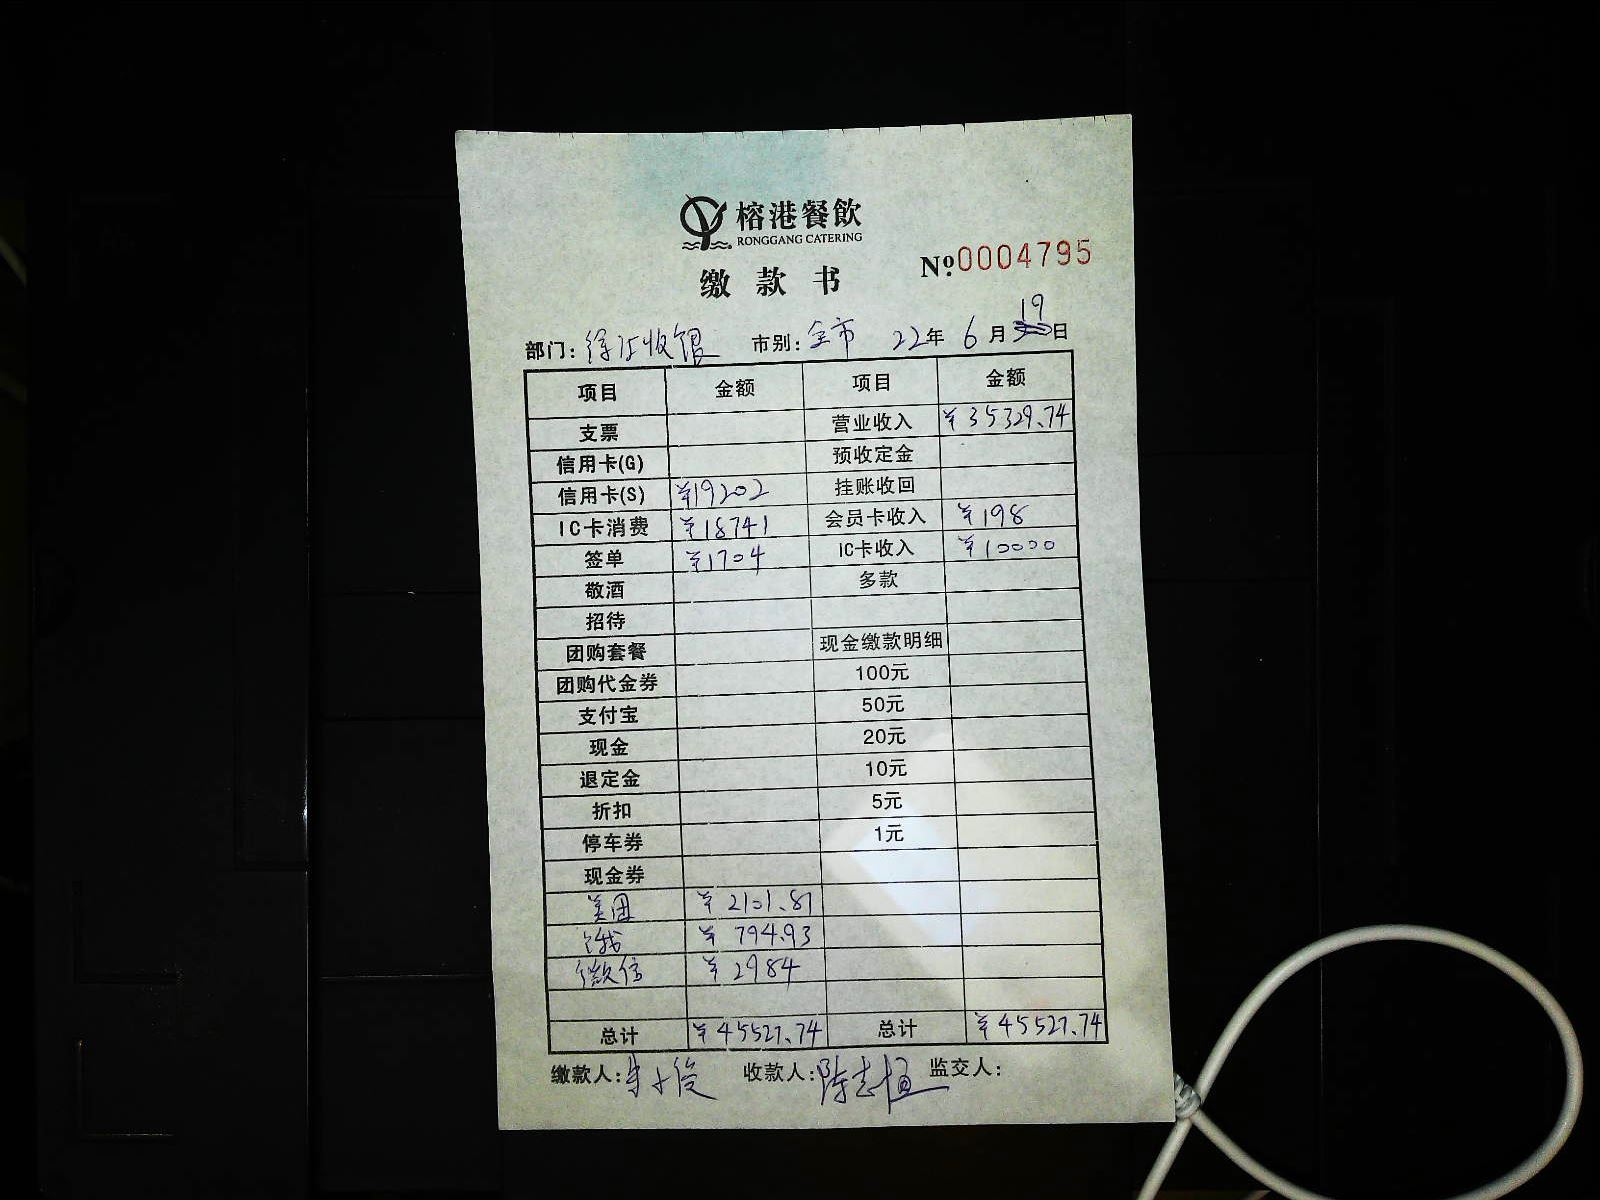 榕港餐飲
RONGGANG CATERING
缴款书 №0004795
部门: 徐汇收银 市别: 全市 22年 6月 19日
项目 金额 项目 金额
支票 营业收入 ¥35329.74
信用卡(G) 预收定金
信用卡(S) ¥19202 挂账收回
IC卡消费 ¥18741 会员卡收入 ¥198
签单 ¥1704 IC卡收入 ¥10000
敬酒 多款
招待
团购套餐 现金缴款明细
团购代金券 100元
支付宝 50元
现金 20元
退定金 10元
折扣 5元
停车券 1元
现金券
美团 ¥2101.81
饿 ¥794.93
微信 ¥2984
总计 ¥45527.74 总计 ¥45527.74
缴款人: 收款人: 监交人: